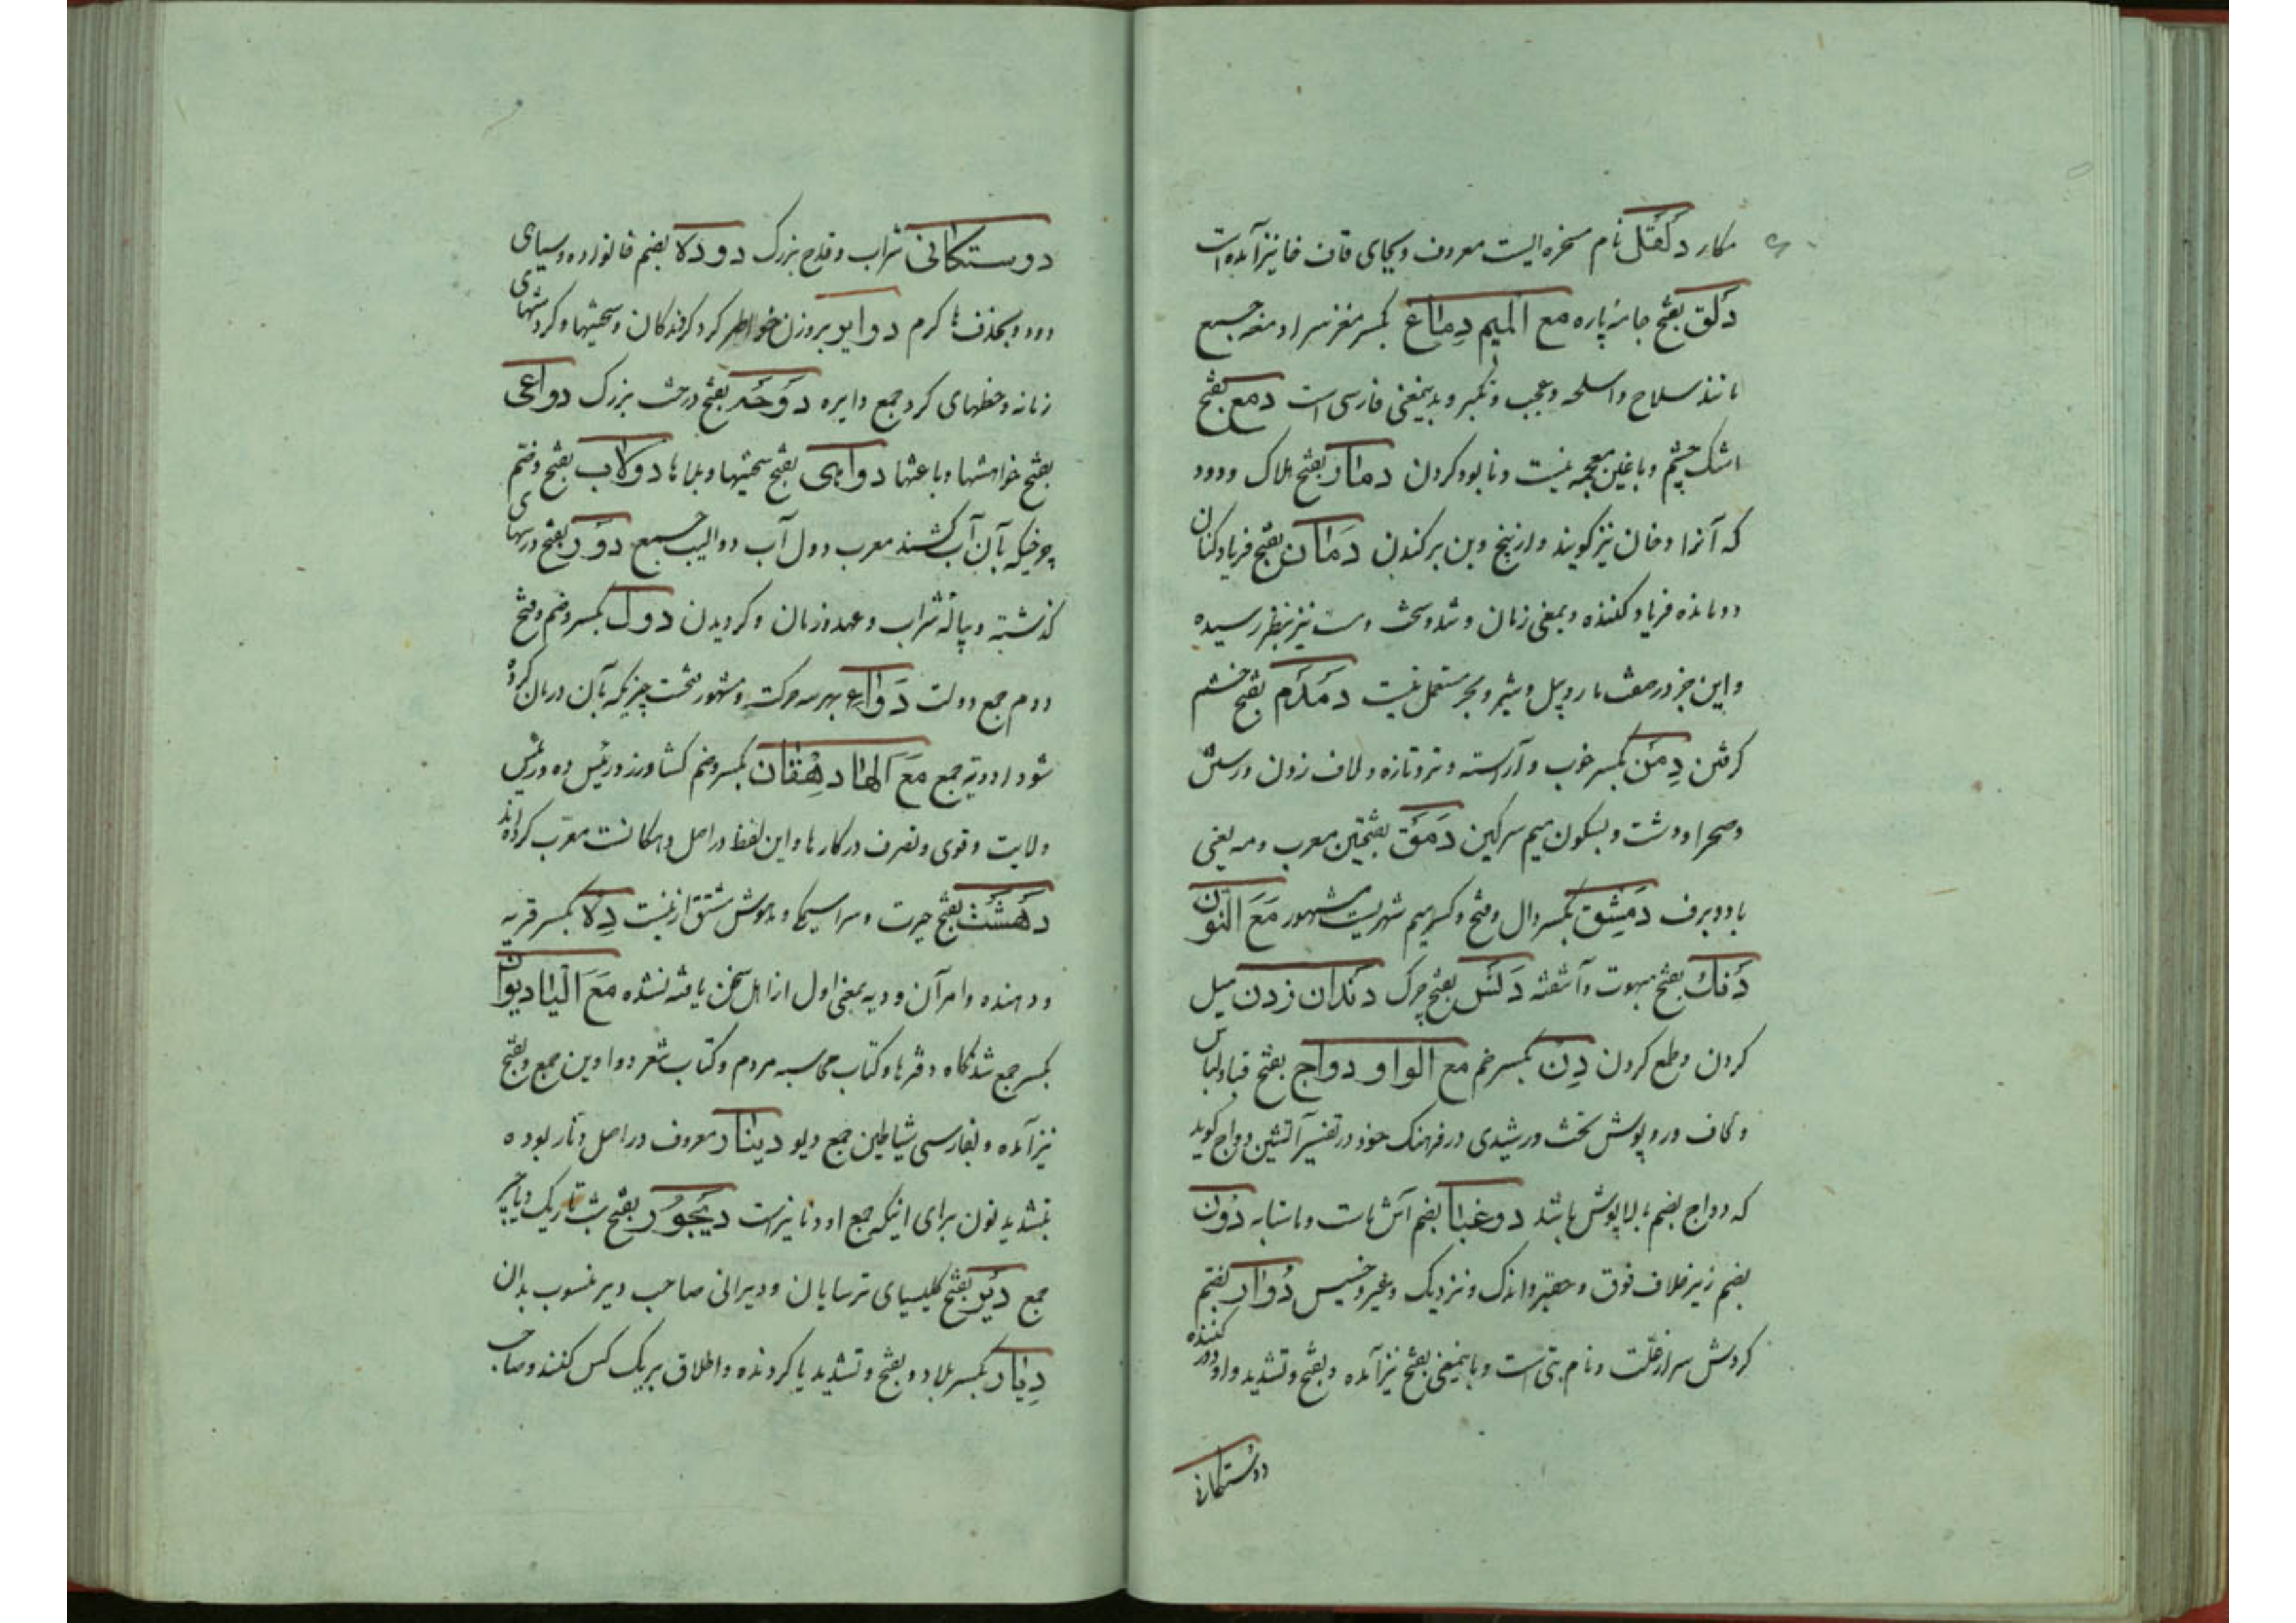 مکار دلقک نام مسخره ایست معروف و بجای قاف خا نیز آمده است
دلق بفتح جامه پاره مع المیم دماغ بکسر مغز سر ادمغه جمع
مانند سلاح و اسلحه و عجب و تکبر و بدینمعنی فارسی است دمع بفتح
اشک چشم و با غین معجمه نیست و نابود کردن دمار بفتح هلاک و دود
که آنرا دخان نیز گویند و از بیخ و بن برکندن دمان بفتح فریادکنان
و دمانده فریاد کننده و بمعنی زمان و تند و سخت و مست نیز بنظر رسیده
و این جز در صفت مار و پیل و شیر و ببر مستعمل نیست دمدم بفتح خشم
گرفتن دمن بکسر خوب و آراسته و تر و تازه و لاف زدن و
و صحرا و دشت و بسکون میم سرکین دمق بفتحتین معرب دمه یعنی
باد و برف دمشق بکسر دال و فتح و کسر میم شهریست مشهور مع النون
دنک بفتح مبهوت و آشفته دنس بفتح چرک دندان زدن میل
کردن و طمع کردن دن بکسر خم مع الواو دواج بفتح قبا و لباس
و لحاف و روپوش تخت و رشیدی در فرهنک خود در تفسیر آتشین دواج گوید
که دواج بضم بالاپوش باشد دوغبا بضم آش ماست و ماستابه دون
بضم زیر خلاف فوق و حقیر و اندک و نزدیک و غیر و خسیس دوار بضم
گردش سر از علت و نام بتی است و باینمعنی بفتح نیز آمده و بفتح و تشدید واو دور کننده
دوستکانی
دوستکانی شراب و قدح بزرک دوده بضم خانواده و سیاهی
دود و بحذف ها کرم دوایر بروزن خواطر کرد کردندکان و سختیها و کردشهای
زمانه و خطهای کرد جمع دایره دوحه بفتح درخت بزرک دواعی
بفتح خواهشها و باعثها دواهی بفتح سختیها و بلاها دولاب بفتح و ضم
چرخیکه بآن آب کشند معرب دول آب دوالیب جمع دور بفتح درسهای
گذشته و پیاله شراب و عهد و زمان و کردیدن دول بکسر و ضم و فتح
دوم جمع دولت دواء بهر سه حرکت و مشهور فتحست چیزیکه بآن درمان کرده
شود ادویه جمع مع الهاء دهقان بکسر و ضم کشاورز و رئیس ده و رئیس
ولایت و قوی و تصرف در کارها و این لفظ در اصل دهکانست معرب کرده اند
دهشت بفتح حیرت و سراسیمگی و مدهوش مشتق ازینست ده بکسر قریه
و دهنده و امر آن و دیه بمعنی اول از اهل سخن یافته نشده مع الیاء دیوان
بکسر جمع شدنگاه دفترها و کتاب محاسبه مردم و کتاب شعر دواوین جمع و بفتح
نیز آمده و بفارسی شیاطین جمع دیو دینار معروف در اصل دنار بوده
بتشدید نون برای اینکه جمع او دنانیر است دیجور بفتح شب تاریک دیاجیر
جمع دیر بفتح کلیسیای ترسایان و دیرانی صاحب دیر منسوب بدان
دیار بکسر بلاد و بفتح و تشدید یا کردنده و اطلاق بر یک کس کنند و صاحب